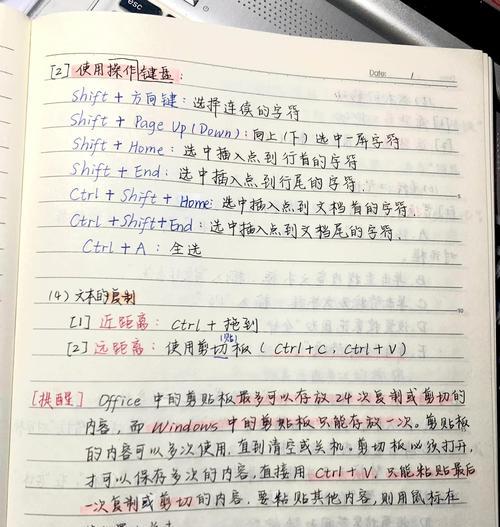 esc
Date: /
[2] 使用操作键盘:
Shift + 方向键: 选择连续的字符
Shift + Page Up (Down): 向上(下)选中一屏字符
Shift + Home: 选中插入点到行首的字符
Shift + End: 选中插入点到行尾的字符
Ctrl + Shift + Home: 选中插入点到文档首的字符
Ctrl + Shift + End: 选中插入点到文档尾的字符.
Ctrl + A: 全选
(4) 文本的复制
[1] 近距离: Ctrl + 拖到
[2] 远距离: 使用剪切(贴)板 ( Ctrl+C, Ctrl+V )
[提醒] Office 中的剪贴板最多可以存放24次复制或剪切的
内容, 而 Windows 中的剪贴板只能存放一次。剪贴板
的内容可以多次使用, 直到清空或关机。剪切板必须打开,
才可以保存多次的内容, 直接用 Ctrl + V, 只能粘贴最后
一次复制或剪切的内容, 要粘贴其他内容, 则用鼠标在